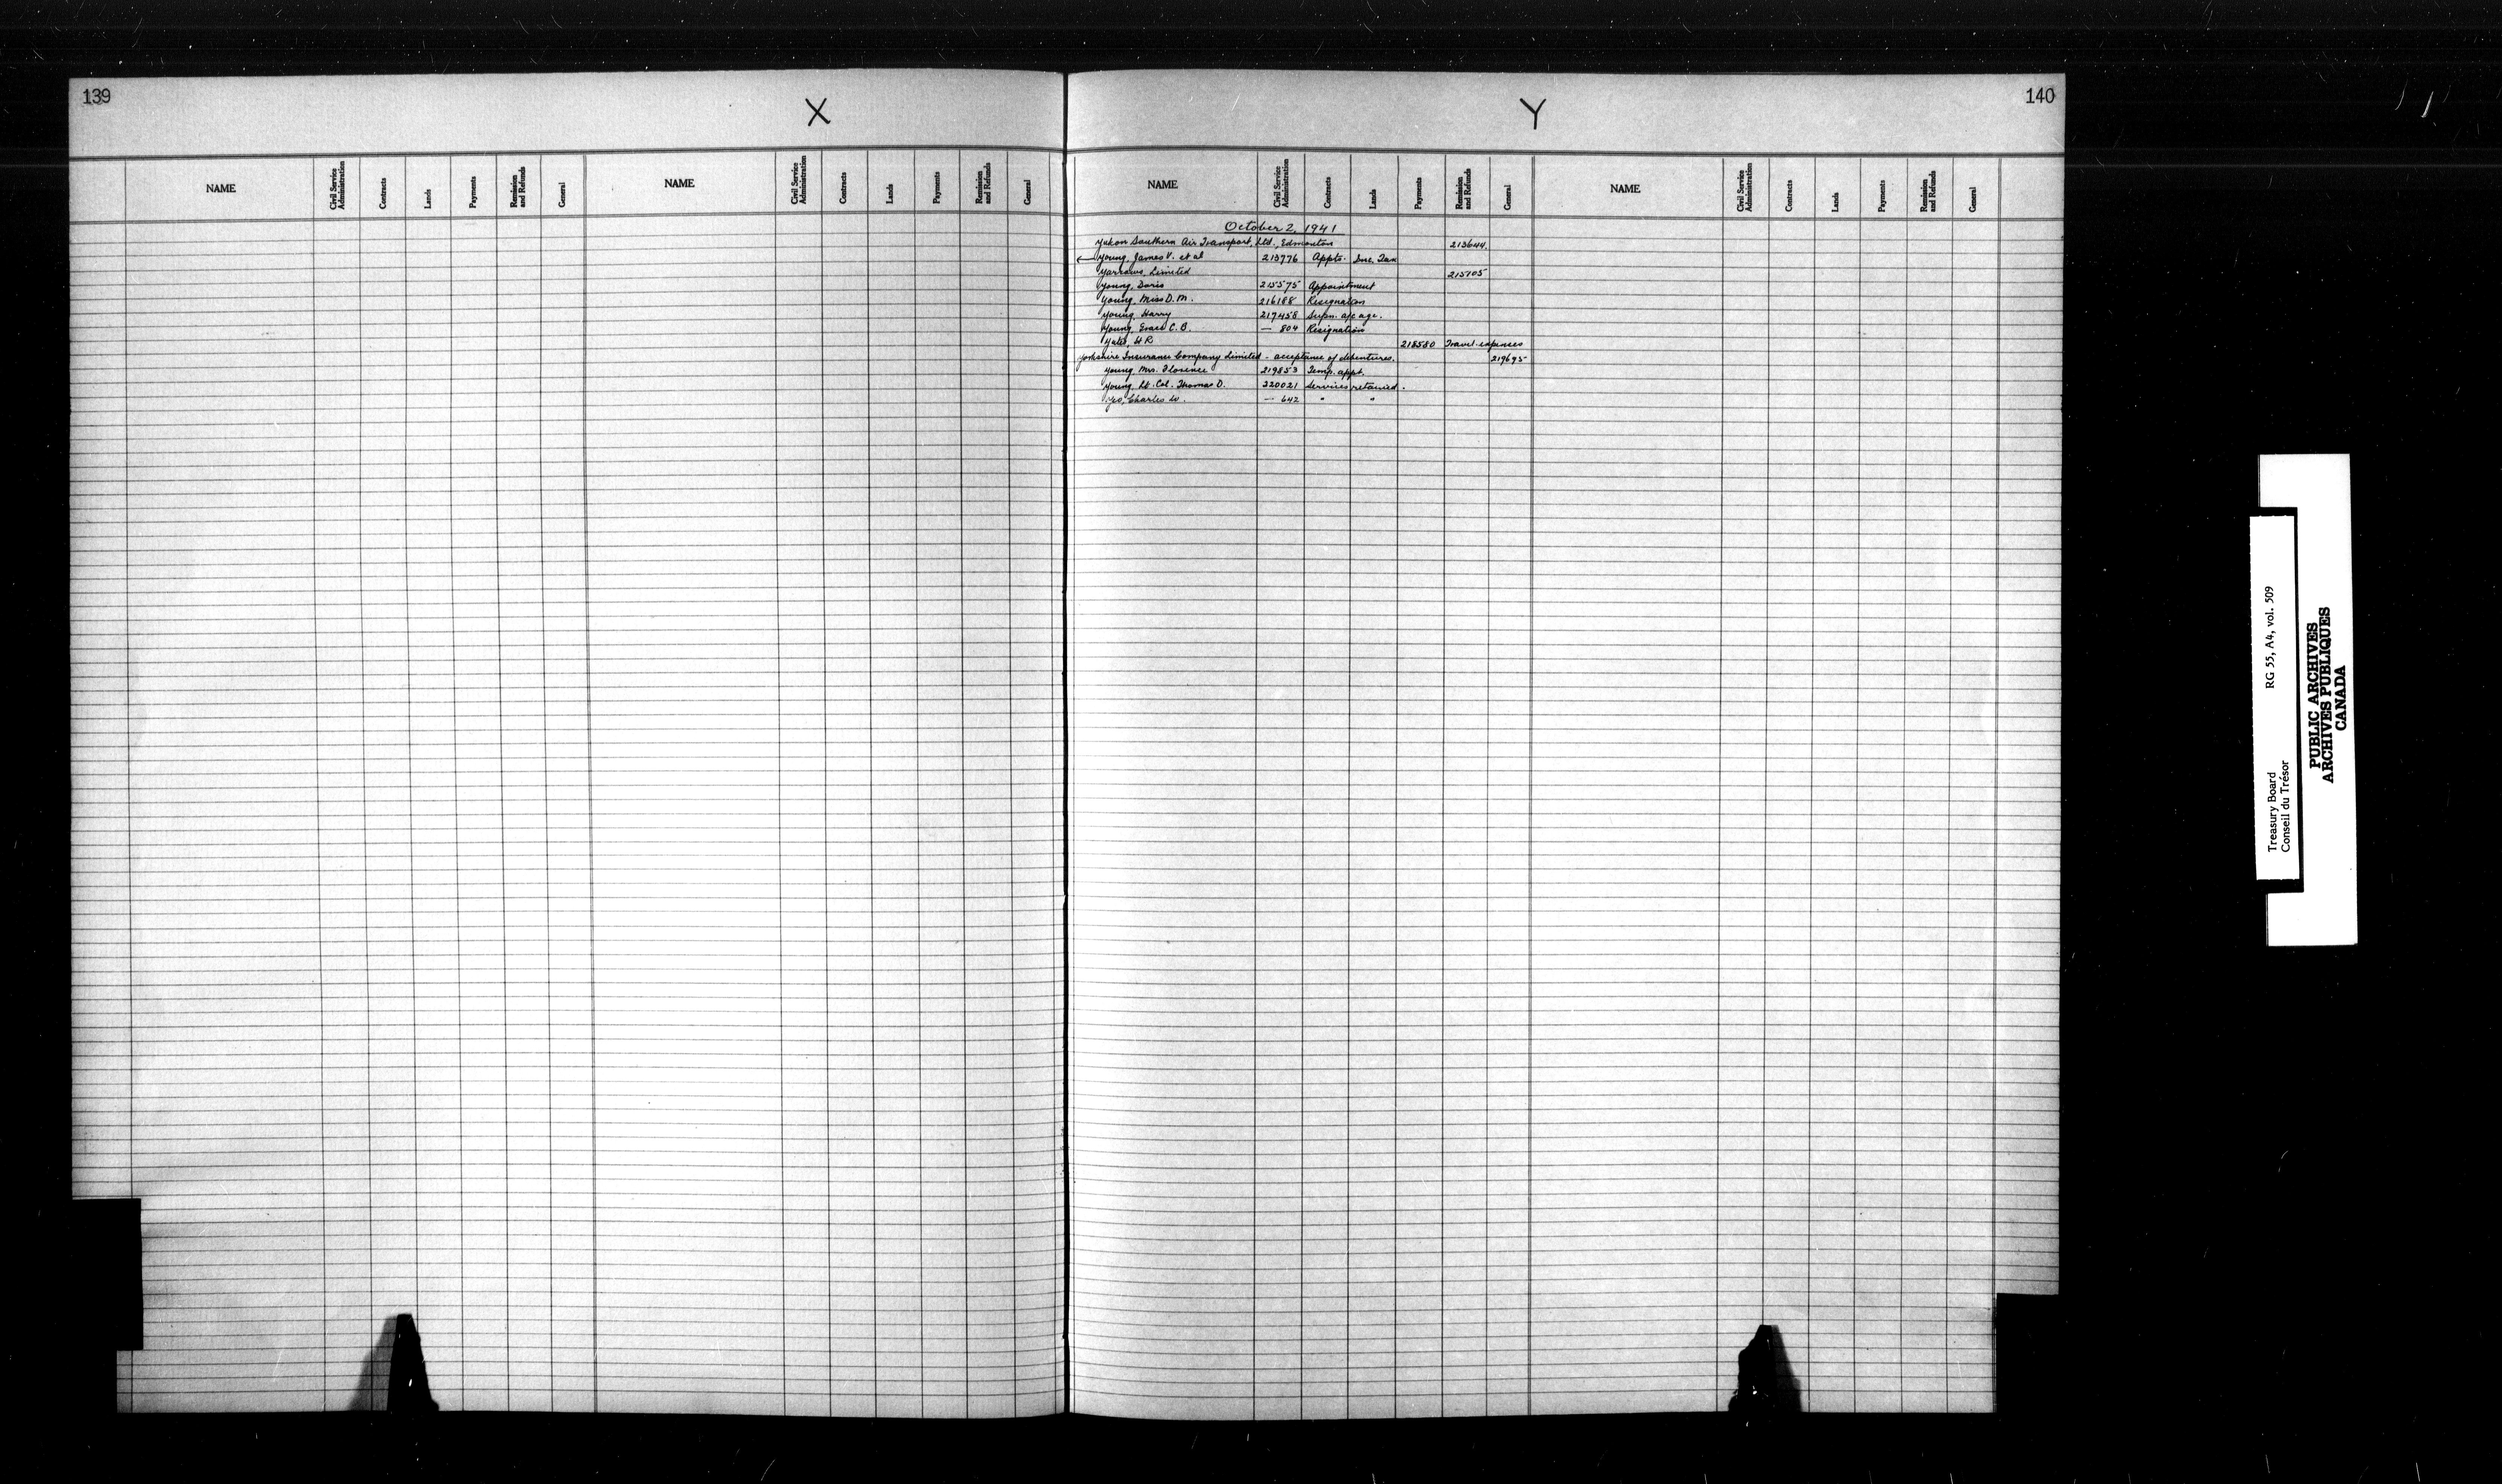 139
X
NAME Civil Service Administration Contracts Lands Payments Remission and Refunds General NAME Civil Service Administration Contracts Lands Payments Remission and Refunds General
140
Y
NAME Civil Service Administration Contracts Lands Payments Remission and Refunds General NAME Civil Service Administration Contracts Lands Payments Remission and Refunds General
October 2, 1941
Yukon Southern Air Transport, Ltd., Edmonton 213644.
Young, James V. et al 213776 Appts. Inc. Tax
Yarrows, Limited 215105
Young, Doris 215575 Appointment
Young, Miss D. M. 216188 Resignation
Young, Harry 217458 Supn. a/c age.
Young, C. B. — 804 Resignation
Yates, H R 218580 Travel. expenses
Yorkshire Insurance Company Limited - acceptance of debentures. 219695
Young, Mrs. Florence 219853 Temp. appt.
Young, Lt. Col. Thomas D. 220021 Services retained.
Yeo, Charles W. — 642 " "
Treasury Board RG 55, A4, vol. 509
Conseil du Trésor
PUBLIC ARCHIVES
ARCHIVES PUBLIQUES
CANADA